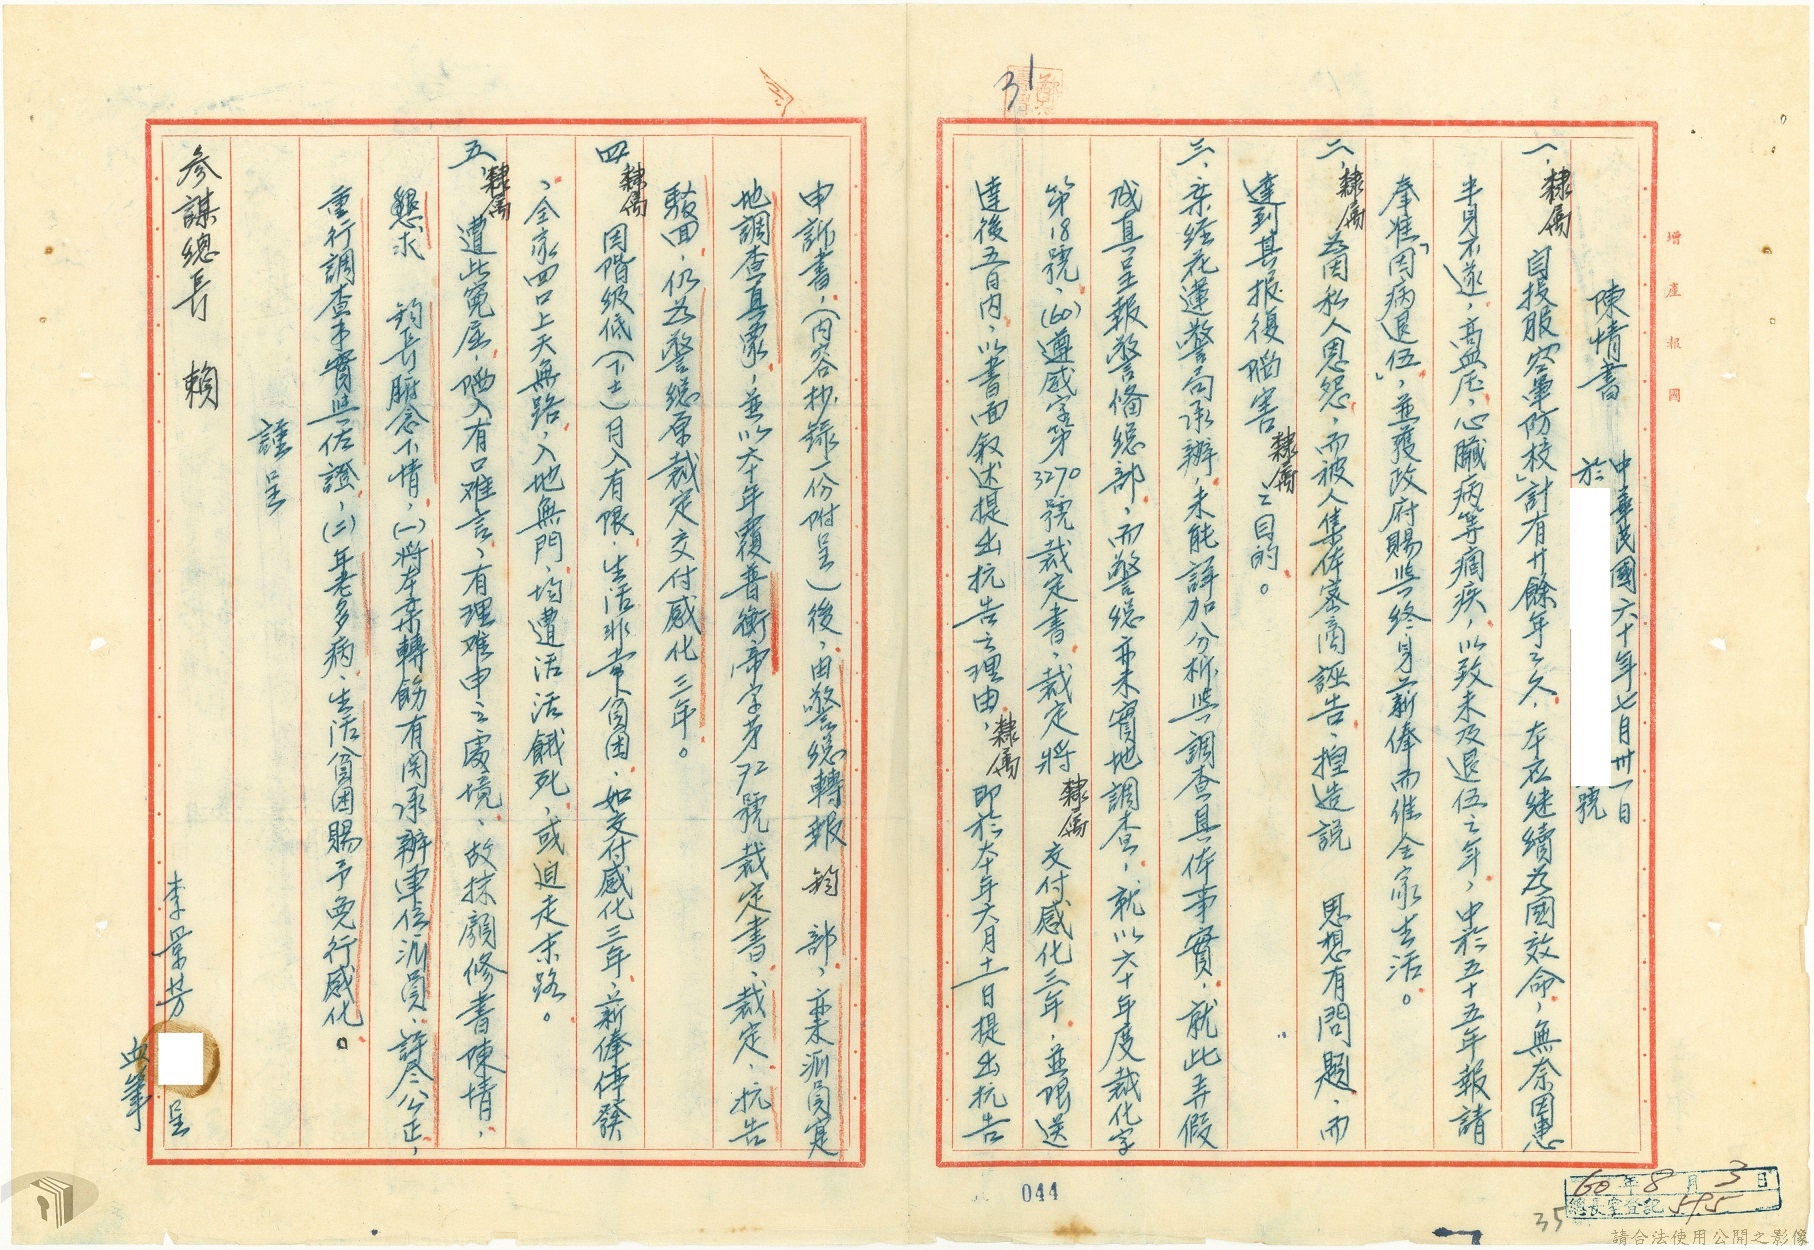 增產報國
陳情書
中華民國六十年七月卅一日
於
號
一、隸屬自投服「空軍防校」計有廿餘年之久,本应継續為國效命,無奈因患
半身不遂,高血压,心臟病等痼疾,以致未及退伍之年,中於五十五年報請
奉准「因病退伍」,並獲政府賜與終身薪俸而維全家生活。
二、隸屬為因私人恩怨,而被人集体密商誣告,揑造說 思想有問題,而
達到其报復陷害隸屬之目的。
三、案经花蓮警局承辦,未能詳加分析與調查具体事實,就此弄假
成真呈報警備總部,而警總亦未實地調查,就以六十年度裁化字
第18號,(60)遵感字第3270號裁定書,裁定將隸屬交付感化三年,並限送
達後五日内,以書面叙述提出抗告之理由,隸屬即於六十年六月十一日提出抗告
申訴書,(内容抄錄一份附呈)後,由警總轉報 鈞部,亦未派員寔
地調查真象,並以六十年覆普衡帝字第72號裁定書,裁定,抗告
駁回,仍為警總原裁定交付感化三年。
四、隸屬因階級低(下士)月入有限,生活非常貧困,如交付感化三年,薪俸停發
,全家四口上天無路,入地無門,均遭活活餓死,或迫走末路。
五、隸屬遭此寃屈,陷入有口难言,有理难申之處境,故抹顏修書陳情,
懇求 鈞長賜念下情,(一)將本案轉飭有関承辦單位派員,詳尽公正,
重行調查事實與佐證,(二)年老多病,生活貧困賜予免行感化。
謹呈
參謀總長 賴
李景芳 呈
血筆
31
044
60年8月3日
總長室登記 595
35
請合法使用公開之影像